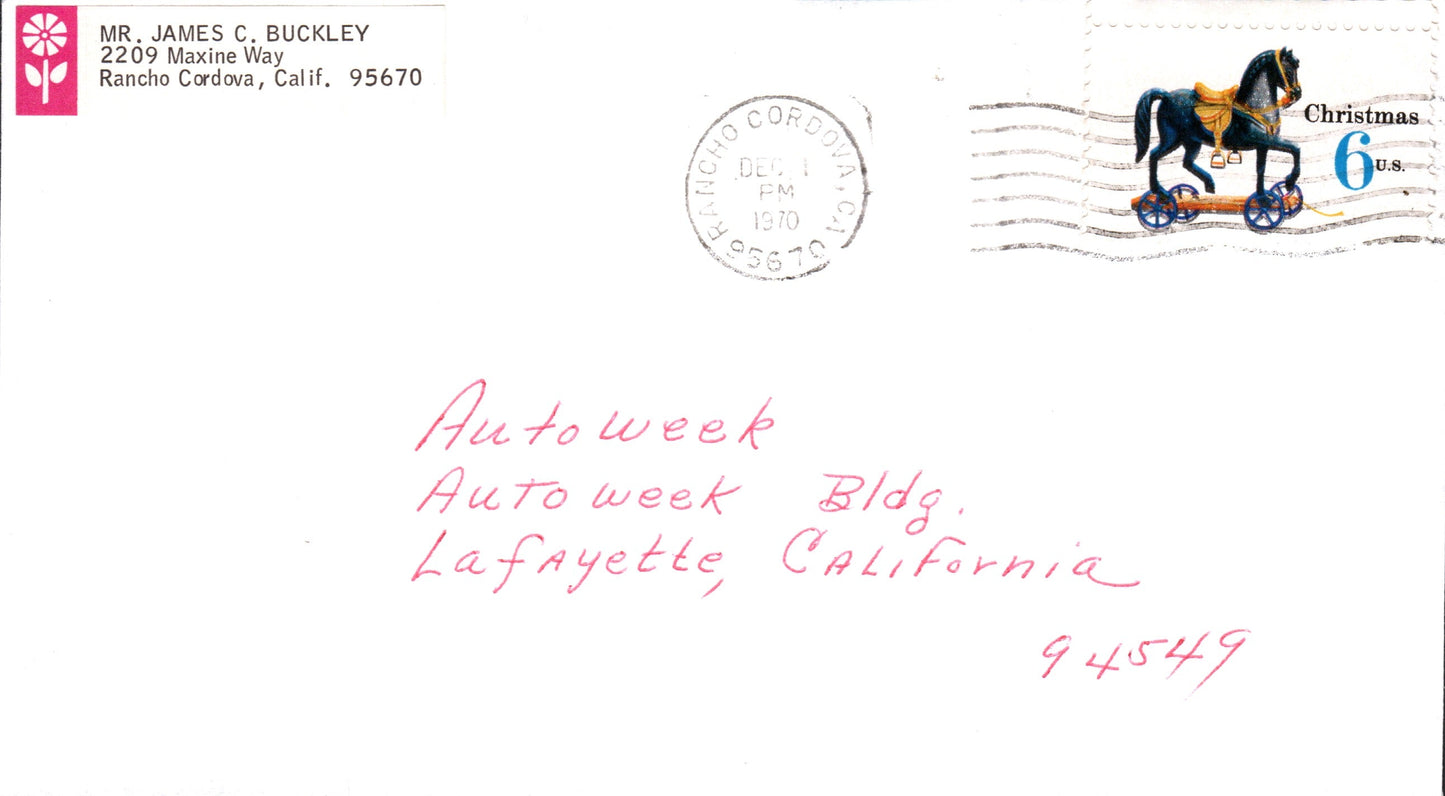 MR. JAMES C. BUCKLEY
2209 Maxine Way
Rancho Cordova, Calif. 95670
RANCHO CORDOVA, CA
DEC 1
PM
1970
95670
Christmas
6 U.S.
Autoweek
Autoweek Bldg.
Lafayette, California
94549